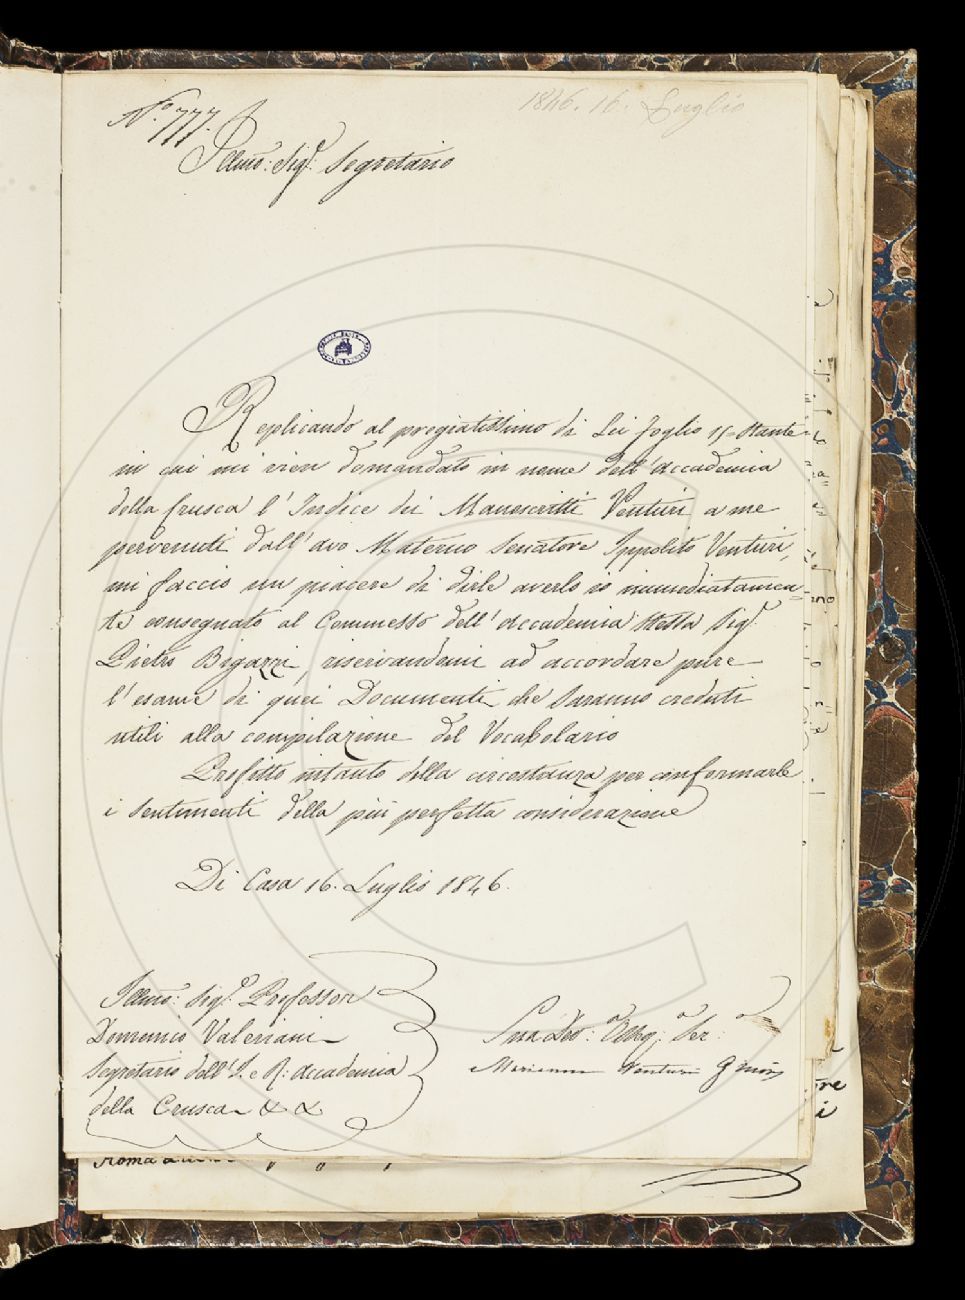 N.º 777.
1846. 16. Luglio
Illmo: Sigr: Segretario
Replicando al pregiatissimo di Lei foglio 15= Stante
in cui mi vien domandato in nome dell'Accademia
della Crusca l'Indice dei Manoscritti Venturi a me
pervenuti dall'avo Materno Senatore Ippolito Venturi,
mi faccio un piacere di dirle averlo io immediatamen=
te consegnato al Commesso dell'Accademia stessa Sigr
Pietro Bigazzi, riservandomi ad accordare pure
l'esame di quei Documenti che saranno creduti
utili alla compilazione del Vocabolario
Profitto intanto della circostanza per confermarle
i sentimenti della più perfetta considerazione
Di Casa 16. Luglio 1846.
Illmo: Sigr: Professor
Domenico Valeriani
Segretario dell'I. e R: Accademia
della Crusca & &
Sua Dev: Obbg: Ser:
Marianna Venturi Ginori
Roma